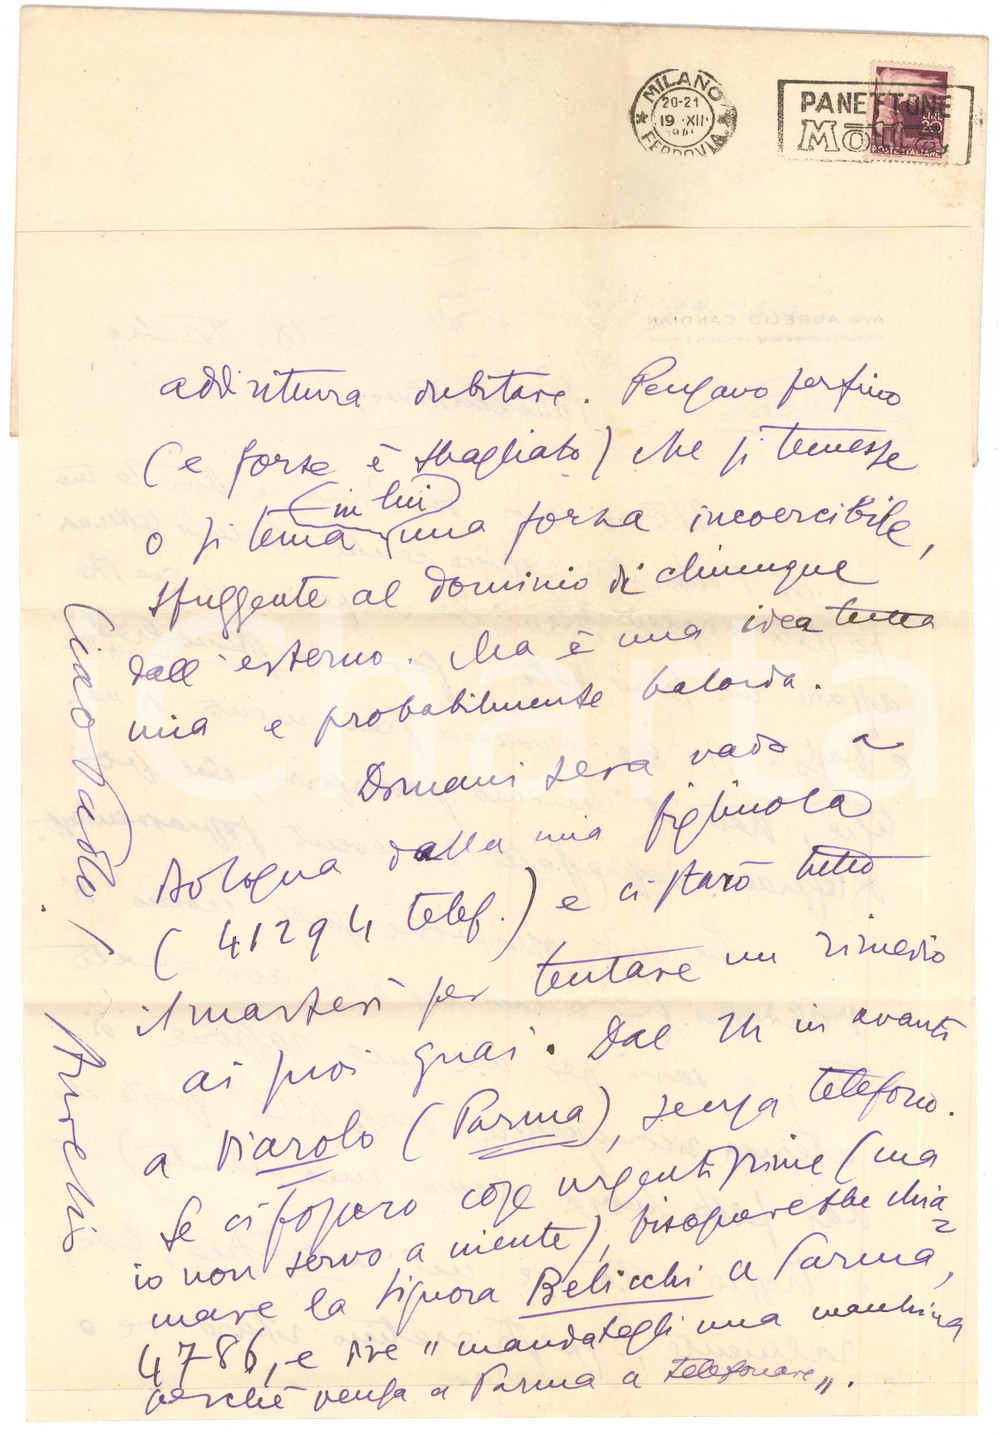 MILANO
20-21
19 XII
FERROVIA
PANETTONE
Motta
LIRE 20
AVV. AURELIO CANDIAN
addirittura dubitare. Pensavo perfino
(e forse è sbagliato) che si temesse
o si tema (in lui) una forza incoercibile,
sfuggente al dominio di chiunque
dall'esterno. Ma è una idea tutta
mia e probabilmente balorda.
Domani sera vado a
Bologna dalla mia figliuola
(41294 telef.) e ci starò tutto
il martedì per tentare un rimedio
ai suoi guai. Dal 24 in avanti
a Viarolo (Parma), senza telefono.
Se ci fossero cose urgentissime (ma
io non servo a niente), bisognerebbe chia=
mare la signora Belicchi a Parma,
4786, e dire "mandategli una macchina
perché venga a Parma a telefonare".
Ciao Paolo!
Aurelio